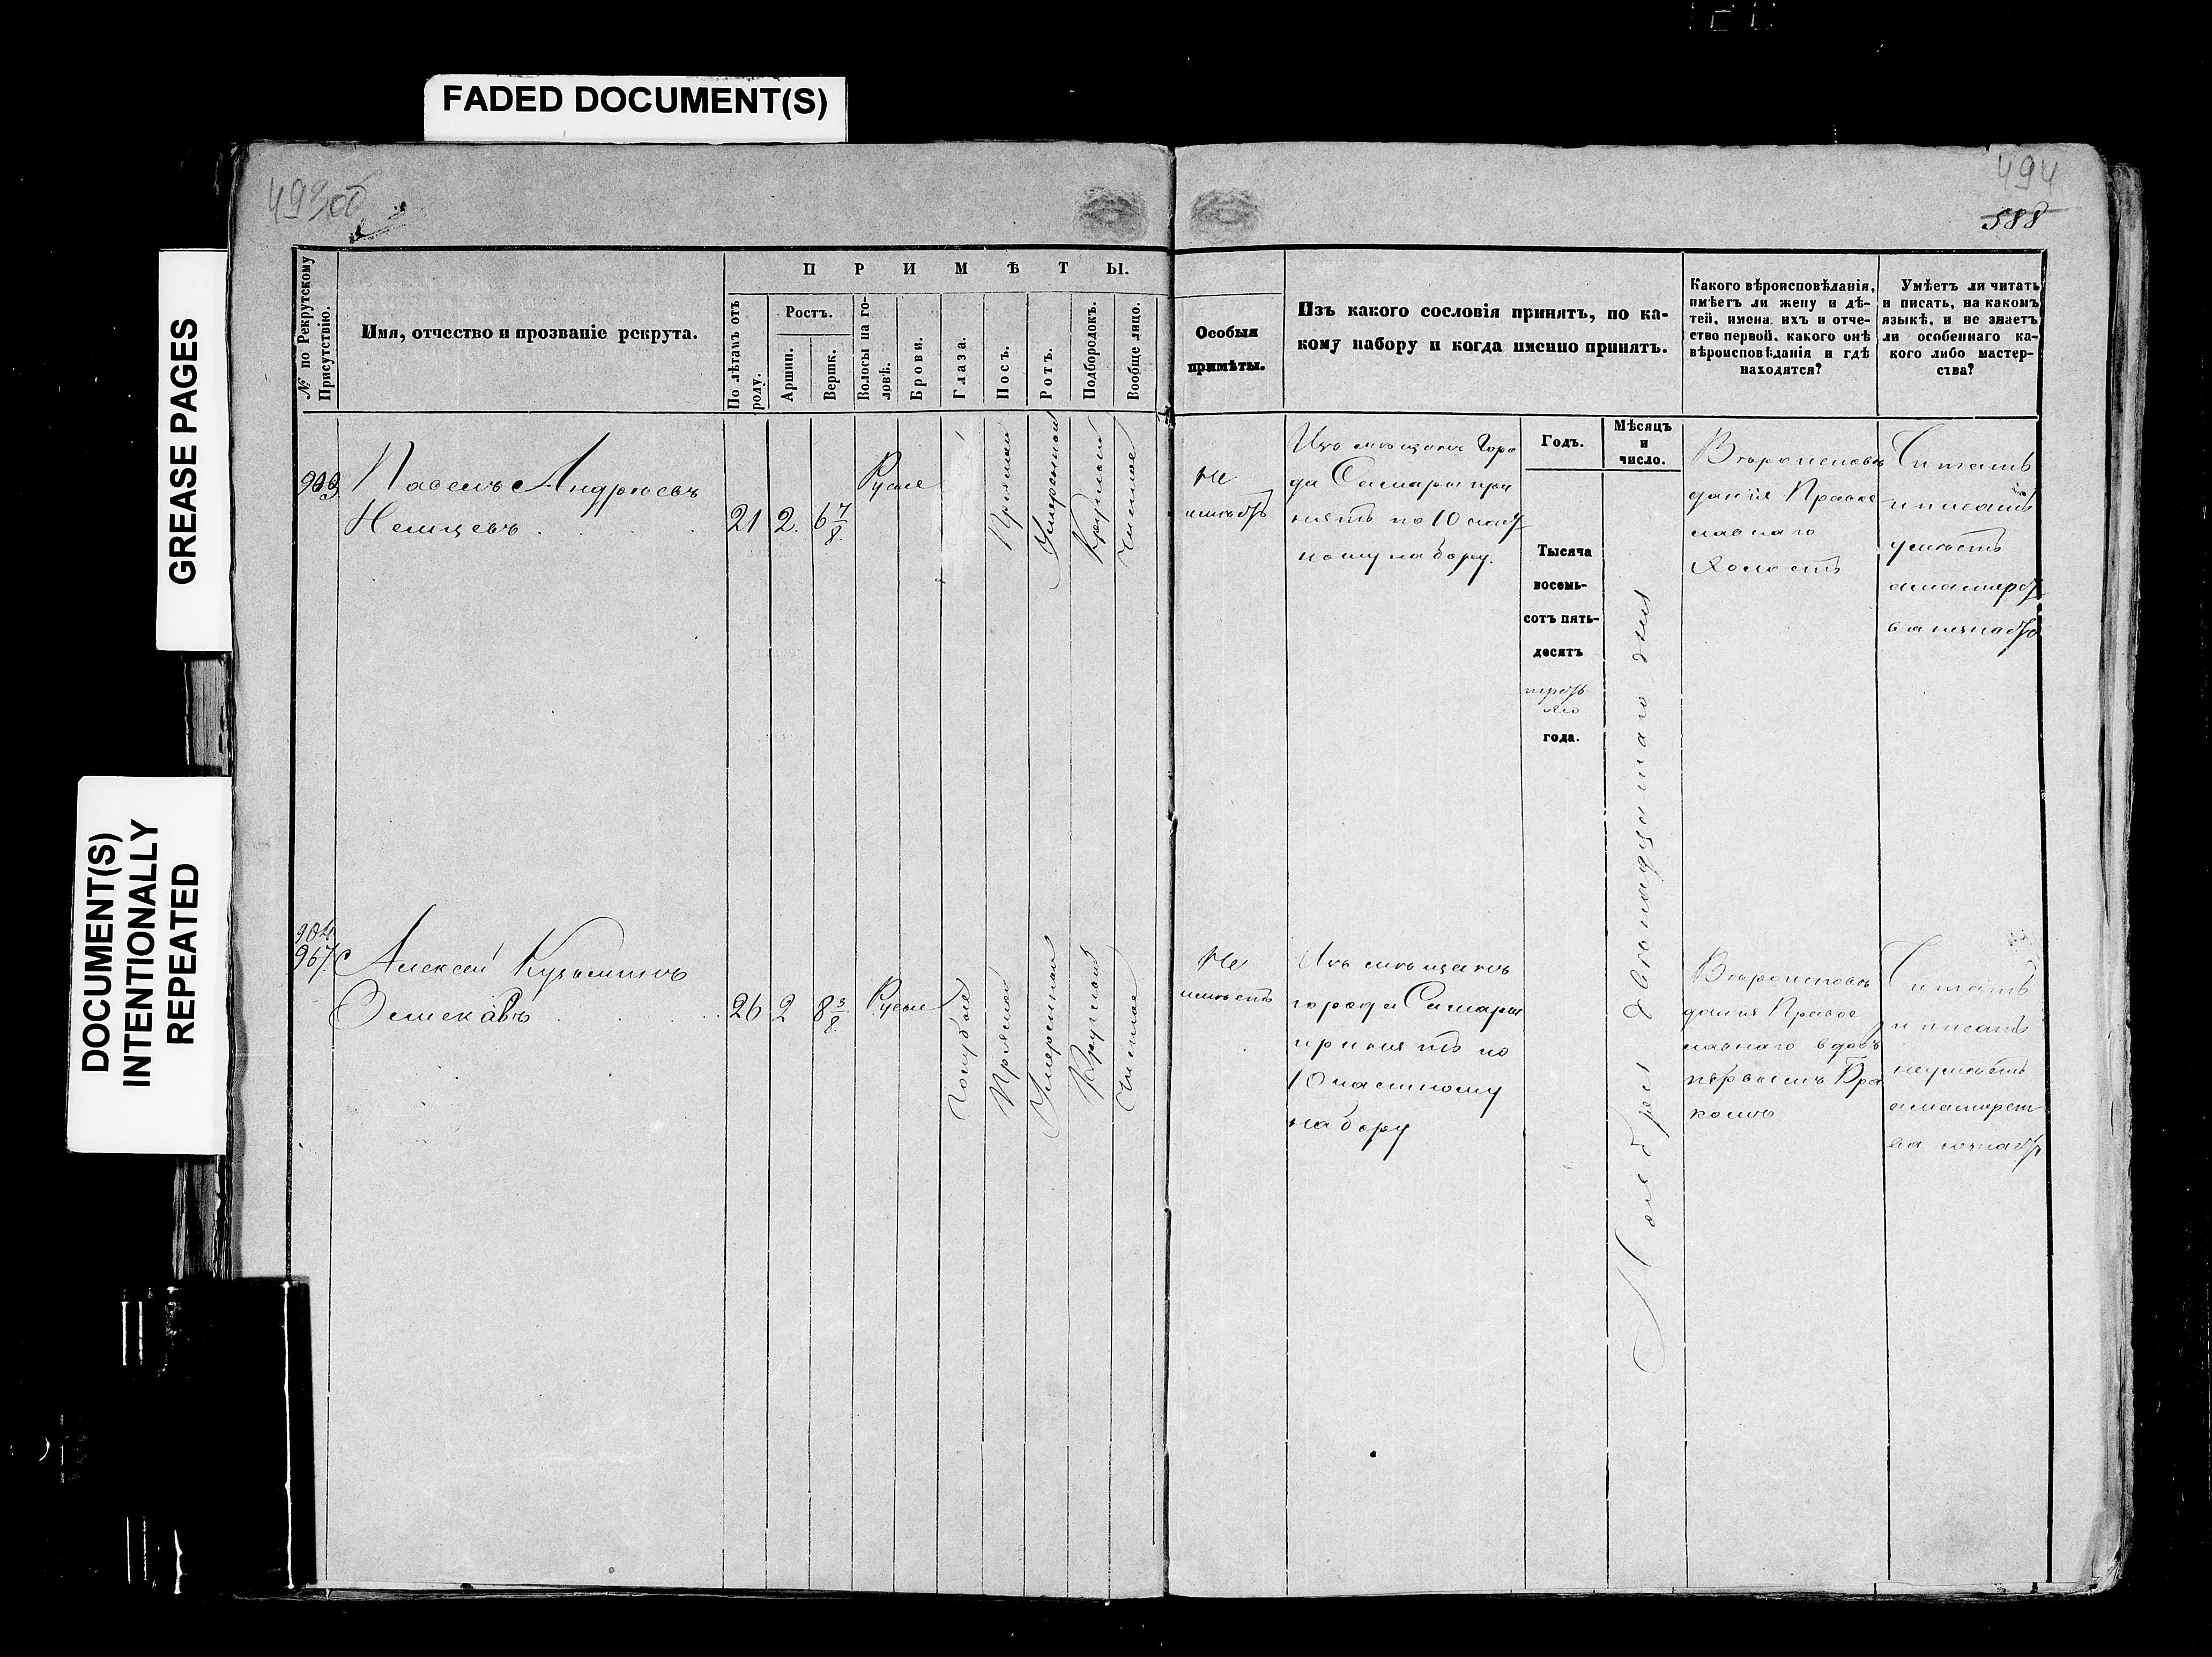 FADED DOCUMENT(S)
GREASE PAGES
DOCUMENT(S)
INTENTIONALLY
REPEATED
493об
494
588
№ по Рекрутскому
Присутствію.
Имя, отчество и прозваніе рекрута.
ПРИМѢТЫ.
По лѣтамъ отъ
роду.
Ростъ.
Аршин.
Вершк.
Волосы на го-
ловѣ.
Брови.
Глаза.
Носъ.
Ротъ.
Подбородокъ.
Вообще лицо.
Особыя
примѣты.
Изъ какого сословія принятъ, по ка-
кому набору и когда именно принятъ.
Какого вѣроисповѣданія,
имѣетъ ли жену и дѣ-
тей, имена ихъ и отче-
ство первой, какого онѣ
вѣроисповѣданія и гдѣ
находятся?
Умѣетъ ли читать
и писать, на какомъ
языкѣ, и не знаетъ
ли особеннаго ка-
кого либо мастер-
ства?
Годъ.
Мѣсяцъ
и
число.
903
Павелъ Андреевъ
Немцевъ
21
2.
6 7/8.
Русые
Прямой
Умеренный
Круглый
Чистое
не
имѣетъ
Изъ мѣщанъ Горо
да Самары при
нятъ по 10 част
ному набору.
Тысяча
восемь-
сотъ пять-
десятъ
года.
Ноября двенадцатаго дня
Вѣроисповѣ
данія Правос
лавнаго
Холостъ
Читать
и писать
умѣетъ
а мастерст
ва незнаетъ
904
967
Алексей Кузьминъ
26
2
8 3/8.
Русые
Голубые
Прямой
Умеренный
Круглый
Чистое
не
имѣетъ
Изъ мѣщанъ
города Самары
принятъ по
10 частному
набору
Вѣроисповѣ
данія Правос
лавнаго вдовъ
первымъ Бра
комъ
Читать
и писать
неумѣетъ
а мастерст
ва незнаетъ